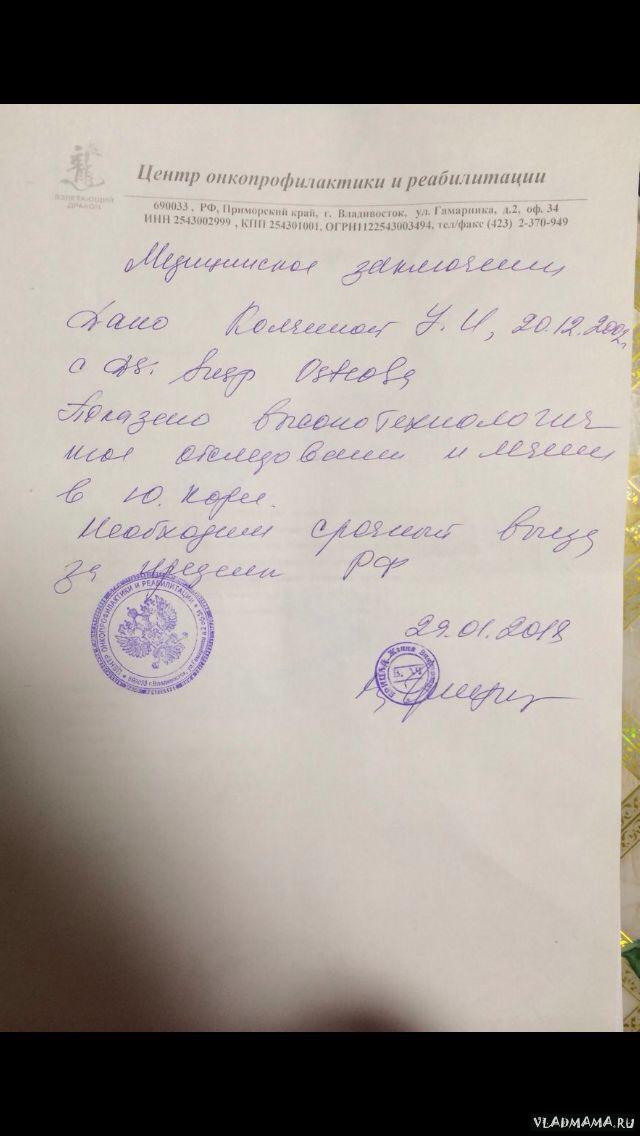 ВЗЛЕТАЮЩИЙ
ДРАКОН
Центр онкопрофилактики и реабилитации
690033 , РФ, Приморский край, г. Владивосток, ул. Гамарника, д.2, оф. 34
ИНН 2543002999 , КПП 254301001, ОГРН1122543003494, тел/факс (423) 2-370-949
Медицинское заключение
Дано И, 20.12.2002г
с DS:
Показано высокотехнологич
ное обследование и лечение
в Ю. Корее.
Необходим срочный выезд
за пределы РФ
ЦЕНТР ОНКОПРОФИЛАКТИКИ И РЕАБИЛИТАЦИИ
690033 г.Владивосток, ул.Гамарника
29.01.2018
Жанна
VLADMAMA.RU